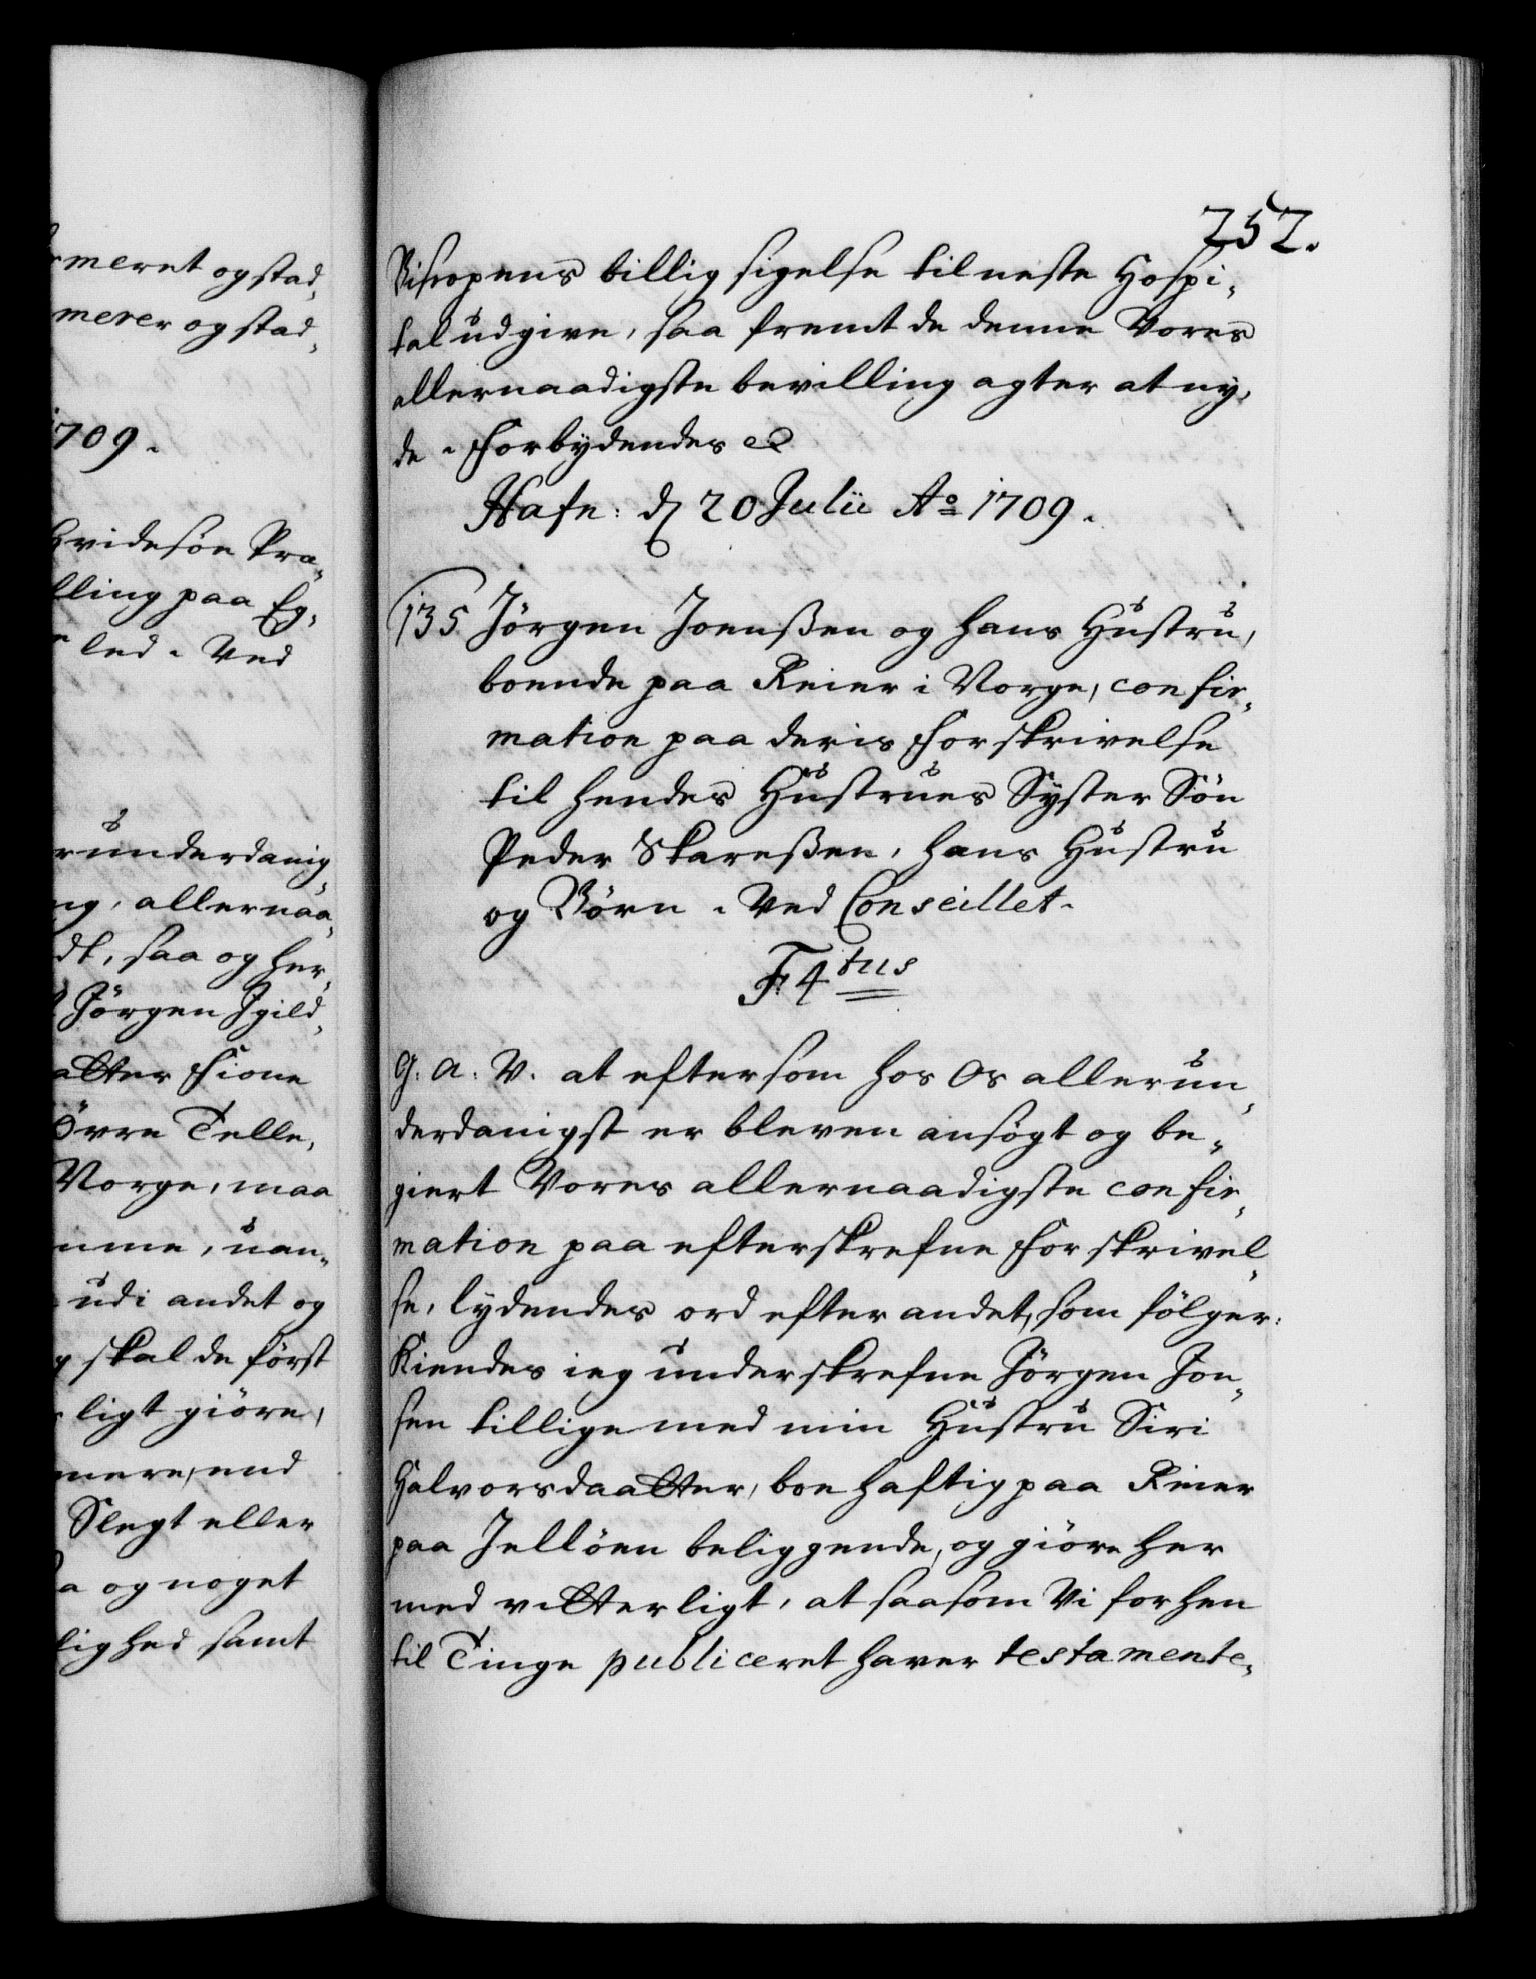 meret og stad„
merer og stad„
1709.
Hvidesøe Præ„
lling paa Eg„
led. Ved
runderdanig
ng, allernaa„
dt, saa og her„
Jörgen Igild„
atter Fione
Övre Telle„
Norge, maa
mme, uan„
udi andet og
skal de först
ligt giöre,
mere, end
Slegt eller
og noget
lighed samt
252.
Bispens billig sigelse til neste Hospi„
tal udgive, saa fremt de denne Vores
allernaadigste bevilling agter at ny„
de. Forbydendes &
Hafn: d 20 Julii Ao 1709.
135 Jörgen Joenssen og hans Hustru,
boende paa Reier i Norge, confir„
mation paa deris forskrivelse
til hendes Hustrues Syster Sön
Peder Skaressen, hans Hustru
og Börn. Ved Conseillet.
F. 4tus
G. A. V. at eftersom hos Os allerun„
derdanigst er bleven ansögt og be„
giert Vores allernaadigste confir„
mation paa efterskrefne forskrivel„
se, lydendes ord efter andet, som fölger:
Kiendes ieg underskrefne Jörgen Jon„
sen tillige med min Hustru Siri
Halvorsdaatter, boe haftig paa Reier
paa Jellöen beliggende, og giöre her
med vitterligt, at saasom Vi forhen
til Tinge publiceret haver testamente„